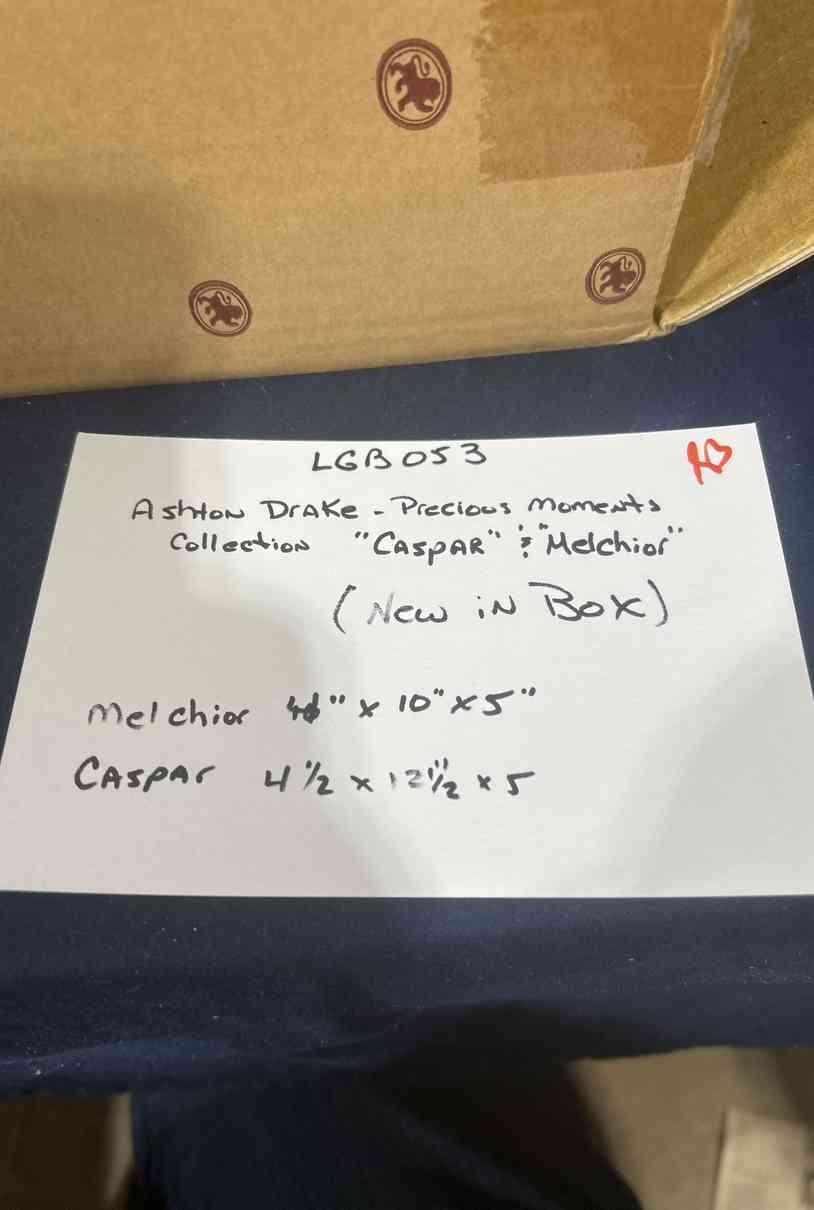 LGB053
Ashton Drake - Precious Moments
Collection "Caspar" & "Melchior"
(New in Box)
Melchior " x 10" x 5"
Caspar 4 1/2 x 12 1/2" x 5